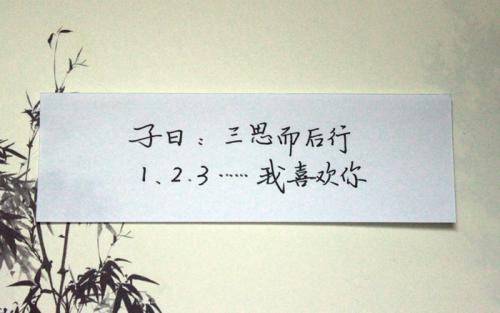 子曰：三思而后行
1、2.3……我喜欢你